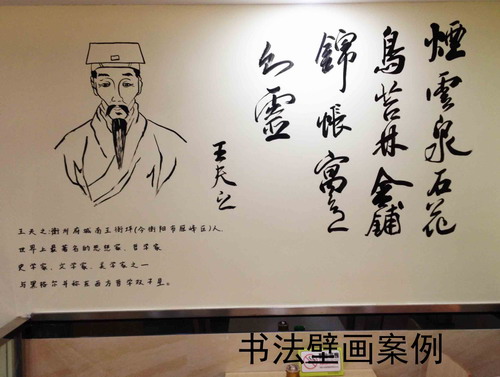 煙雲泉石花
鳥苔林金鋪
錦帳寓意
则靈
王夫之
王夫之衡州府城南王衙坪(今衡阳市雁峰区)人,
世界上最著名的思想家、哲学家
史学家、文学家、美学家之一
与黑格尔并称东西方哲学双子星。
书法壁画案例